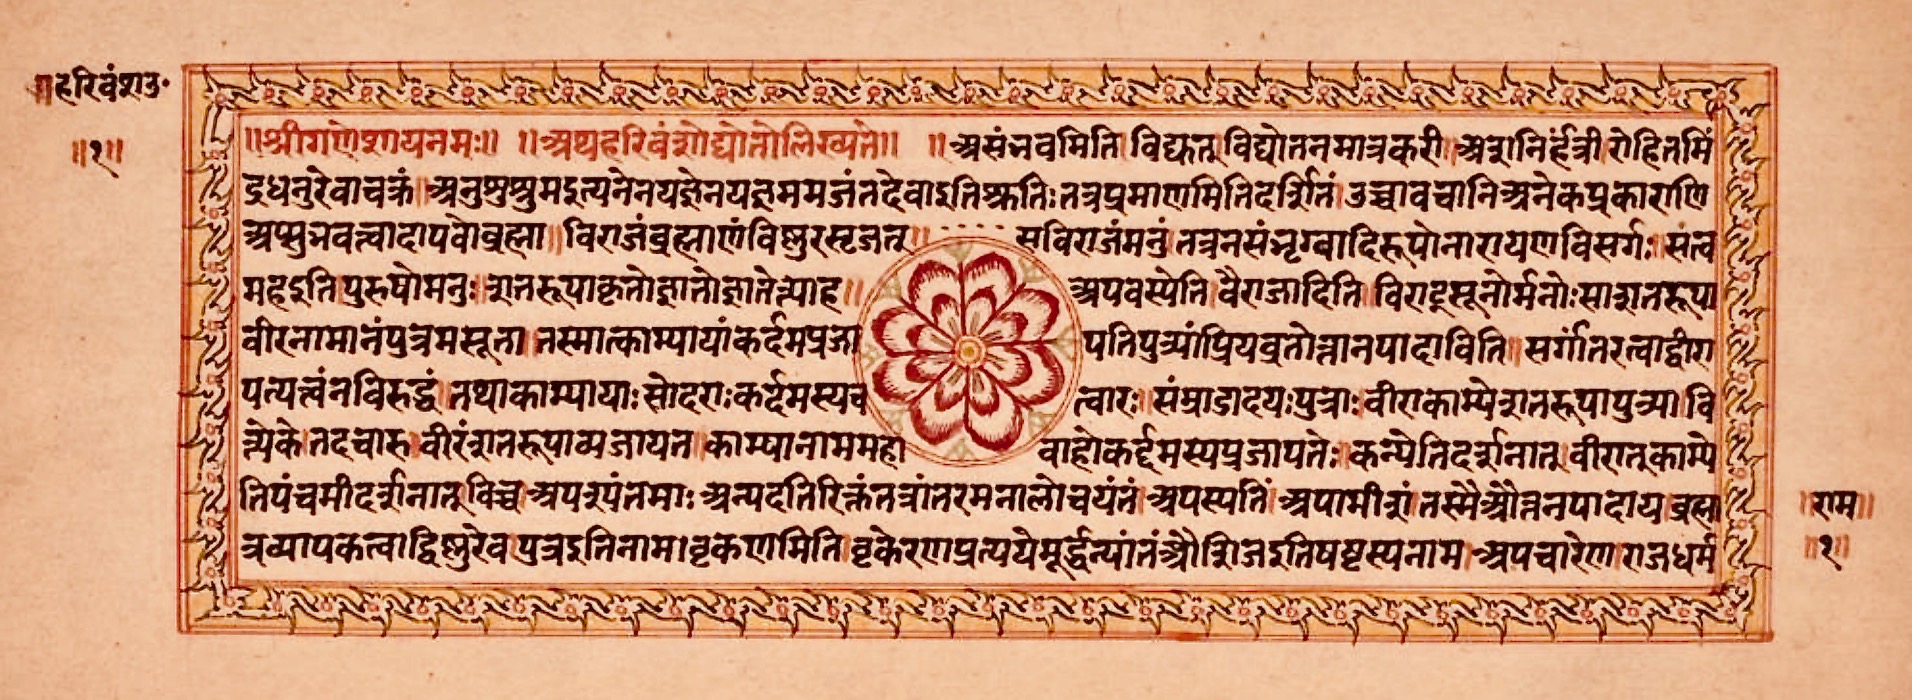 ॥हरिवंशउ॰
॥१॥
॥श्रीगणेशायनमः॥ ॥अथहरिवंशोद्योतोलिख्यते॥ ॥असंभवमिति विद्युत्तु विद्योतनमात्रकरी अशनिर्हंत्री रोहितमिं
द्रधनुरेवावक्रं अनुष्णुष्णुमइत्यनेनयज्ञेनयज्ञममजंतदेवाइतिश्रुतिः तत्रप्रमाणमितिदर्शितं उच्चावचानिअनेकप्रकाराणि
अप्सुभवत्वादापवोब्रह्मा विराजंब्रह्माणंविष्णुरसृजत्॥ सविराजंमनुं तत्रनसंभृग्वादिरूपोनारायणविसर्गः संत्व
महइति पुरुषोमनुः शतरूपाकृतोज्ञातोज्ञातेत्याह॥ अपवस्येति वैराजादिति विराट्सूनोर्मनोः साशतरूपा
वीरनामानंपुत्रमसूता तस्मात्काम्यायांकर्दमप्रजा पतिपुत्र्यांप्रियव्रतोत्तानपादाविति सर्गांतरत्वाद्वीरा
पत्यत्वंनविरुद्धं तथाकाम्यायाः सोदराः कर्दमस्यच त्वारः संम्राडादयः पुत्राः वीराकाम्येशतरूपापुत्र्या वि
त्येके तदचारु वीरंशतरूपाव्यजायत काम्यानाममहा वाहोकर्द्दमस्यप्रजापतेः कन्येतिदर्शनात् वीरात्काम्ये
तिपंचमीदर्शनात् विच्च अपरुपंतमाः अन्यदतिरिक्तंतत्रांतरमनालोचयंतं अपस्पतिं अपामीशं तस्मैऔत्तनपादाय ब्रह्मा
त्रव्यापकत्वाद्विष्णुरेव पुत्रइतिनाम। वृकणमिति वृकेरणप्रत्ययेमूर्द्धन्यांतंऔशिजइतिषष्टस्यनाम अपचारेण राजधर्म
॥राम॥
॥१॥